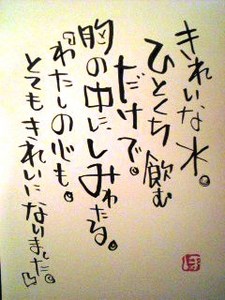 きれいな水。
ひとくち飲む
だけで。
胸の中にしみわたる。
『わたしの心も。
とてもきれいになりました。』